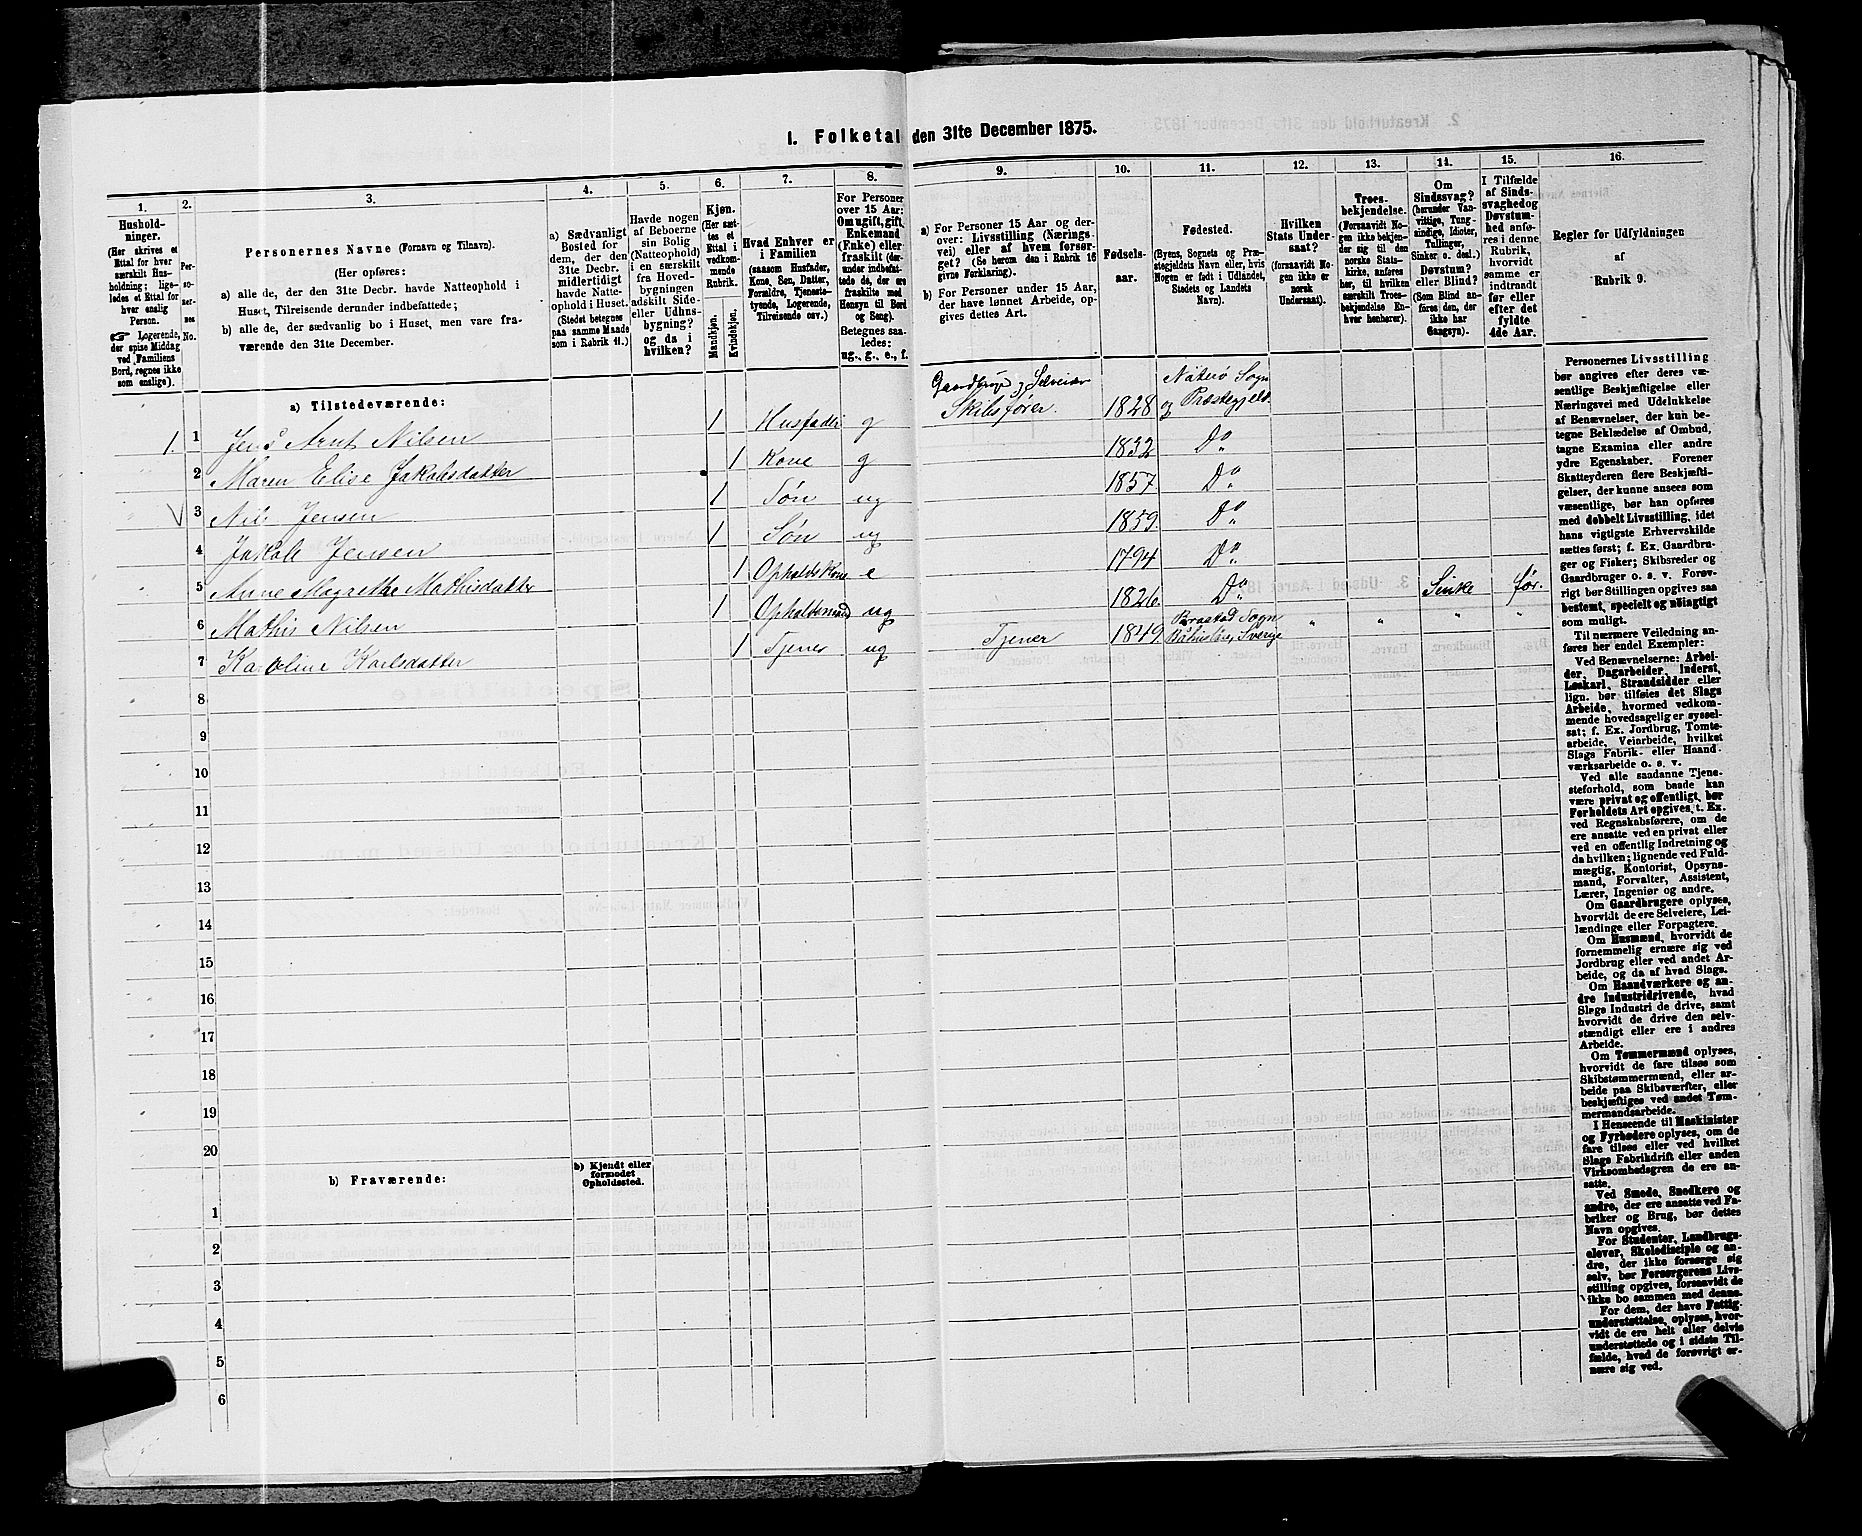 1. Folketal den 31te December 1875.
1.
2.
3.
4.
5.
6.
7.
8.
9.
10.
11.
12.
13.
14.
15.
16.
Hushold-
ninger.
(Her skrives et
Ettal for hver
særskilt Hus-
holdning; lige-
ledes et Ettal for
hver enslig
Person.
☞ Logerende,
der spise Middag
ved Familiens
Bord, regnes ikke
som enslige).
Per-
so-
ner-
nes
No.
Personernes Navne (Fornavn og Tilnavn).
(Her opføres:
a) alle de, der den 31te Decbr. havde Natteophold i
Huset, Tilreisende derunder indbefattede;
b) alle de, der sædvanlig bo i Huset, men vare fra-
værende den 31te December.
a) Sædvanligt
Bosted for
dem, der den
31te Decbr.
midlertidigt
havde Natte-
ophold i Huset.
(Stedet betegnes
paa samme Maade
som i Rubrik 11.)
Havde nogen
af Beboerne
sin Bolig
(Natteophold)
i en særskilt
fra Hoved-
bygningen
adskilt Side-
eller Udhus-
bygning?
og da i
hvilken?
Kjøn.
(Her sæt-
tes et
Ettal i
vedkom-
mende
Rubrik.
Mandkjøn.
Kvindekjøn.
Hvad Enhver er
i Familien
(saasom Husfader,
Kone, Søn, Datter,
Forældre, Tjeneste-
tyende, Logerende,
Tilreisende osv.)
For Personer
over 15 Aar:
Om ugift, gift,
Enkemand
(Enke) eller
fraskilt (der-
under indbefat-
tede de, der ere
fraskilte med
Hensyn til Bord
og Seng).
Betegnes saa-
ledes:
ug., g., e., f.
a) For Personer 15 Aar og der-
over: Livsstilling (Nærings-
vei) eller af hvem forsør-
get? (Se herom den i Rubrik 16
givne Forklaring).
b) For Personer under 15 Aar,
der have lønnet Arbeide, op-
gives dettes Art.
Fødsels-
aar.
Fødested.
(Byens, Sognets og Præ-
stegjeldets Navn eller, hvis
Nogen er født i Udlandet,
Stedets og Landets
Navn).
Hvilken
Stats Under-
saat?
(foraavidt No-
gen ikke er
norsk
Undersaat).
Troes-
bekjendelse.
(Foraavidt No-
gen ikke bekjen-
der sig til den
norske Stats-
kirke, anføres
her, til hvilken
særskilt Troes-
bekjendelse En-
hver henhører).
Om
Sindssvag?
(herunder Van-
vittige, Tung-
sindige, Idioter,
Tullinger,
Sinker o. desl.)
Døvstum?
eller Blind?
(Som Blind an-
føres den, der
ikke har
Gangsyn).
I Tilfælde
af Sinds-
svaghed og
Døvstum-
hed anfø-
res i denne
Rubrik,
hvorvidt
samme er
indtraadt
før eller
efter det
fyldte
4de Aar.
Regler for Udfyldningen
af
Rubrik 9.
a) Tilstedeværende:
Gaardbruger, Selveier
1. 1 Jens Arnt Nilsen 1 Husfader g Skibsfører. 1828 Nøterø Sogn og Præstegjeld.
2 Maren Elise Jakobsdatter 1 Kone g 1832 Do
3 Nils Jensen 1 Søn ug 1857. Do
4 Jakob Jensen 1 Søn ug 1859. Do
5 Anne Magrethe Mathisdatter 1 Opholdskone e 1794 Do
6 Mathis Nilsen 1 Opholdsmand ug 1826. Do Sinke før.
7 Karoline Karlsdatter 1 Tjener ug Tjener 1849. Brastad Sogn Sverige " " " "
8
9
10
11
12
13
14
15
16
17
18
19
20
b) Fraværende:
b) Kjendt eller
formodet
Opholdssted.
1
2
3
4
5
6
Personernes Livsstilling
bør angives efter deres væ-
sentlige Beskjæftigelse eller
Næringsvei med Udelukkelse
af Benævnelser, der kun be-
tegne Beklædelse af Ombud,
tagne Examina eller andre
ydre Egenskaber. Forener
Skatteyderen flere Beskjæfti-
gelser, der kunne ansees som
væsentlige, bør han opføres
med dobbelt Livsstilling, idet
hans vigtigste Erhvervskilde
sættes først; f. Ex. Gaardbru-
ger og Fisker; Skibsreder og
Gaardbruger o. s. v. Forøv-
rigt bør Stillingen opgives saa
bestemt, specielt og nøiagtigt
som muligt.
Til nærmere Veiledning an-
føres her endel Exempler:
Ved Benævnelserne: Arbei-
der, Dagarbeider, Inderst,
Løskarl, Strandsidder eller
lign. bør tilføies det Slags
Arbeide, hvormed vedkom-
mende hovedsagelig er syssel-
sat; f. Ex. Jordbrug, Tomte-
arbeide, Veiarbeide, hvilket
Slags Fabrik- eller Haand-
værksarbeide o. s. v.
Ved alle saadanne Tjene-
steforhold, som baade kan
være privat og offentligt, bør
Forholdets Art opgives, t. Ex.
ved Regnskabsførere, om de
ere ansatte ved en privat eller
ved en offentlig Indretning og
da hvilken; lignende ved Fuld-
mægtig, Kontorist, Opsyns-
mand, Forvalter, Assistent,
Lærer, Ingeniør og andre.
Om Gaardbrugere oplyses,
hvorvidt de ere Selveiere, Lei-
lændinge eller Forpagtere.
Om Husmænd, hvorvidt de
fornemmelig ernære sig ved
Jordbrug eller ved andet Ar-
beide, og da af hvad Slags.
Om Haandværkere og an-
dre Industridrivende, hvad
Slags Industri de drive, samt
hvorvidt de drive den selv-
stændigt eller ere i andres
Arbeide.
Om Tømmermænd oplyses,
hvorvidt de fare tilsøs som
Skibstømmermænd, eller ar-
beide paa Skibsværfter, eller
beskjæftiges ved andet Tøm-
mermandsarbeide.
I Henseende til Maskinister
og Fyrbødere oplyses, om de
fare tilsøs eller ved hvilket
Slags Fabrikdrift eller anden
Virksomhedsgren de ere an-
satte.
Ved Smede, Snedkere og
andre, der ere ansatte ved Fa-
briker og Brug, bør dettes
Navn opgives.
For Studenter, Landbrugs-
elever, Skoledisciple og an-
dre, der ikke forsørge sig
selv, bør Forsørgerens Livs-
stilling opgives, forsaavidt de
ikke bo sammen med denne.
For dem, der have Fattig-
understøttelse, oplyses, hvor-
vidt de ere helt eller delvis
understøttede og i sidste Til-
fælde, hvad de forøvrigt er-
nære sig ved.